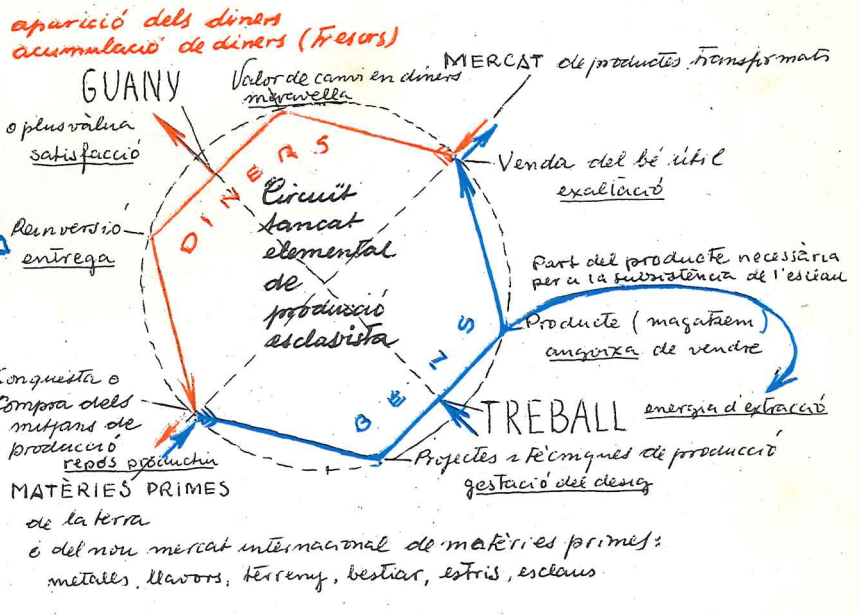 aparició dels diners
acumulació de diners (Tresors)
GUANY
o plusvàlua
satisfacció
Valor de canvi en diners
meravella
MERCAT de productes transformats
Venda del bé útil
exaltació
Reinversió
entrega
DINERS
Circuït
tancat
elemental
de
producció
esclavista
BENS
Part del producte necessària
per a la subsistència de l'esclau
Producte (magatzem)
angoixa de vendre
Conquesta o
Compra dels
mitjans de
producció
repòs productiu
TREBALL energia d'extracció
Projectes i tècniques de producció
gestació del desig
MATÈRIES PRIMES
de la terra
o del nou mercat internacional de matèries primes:
metalls, llavors, terreny, bestiar, estris, esclaus